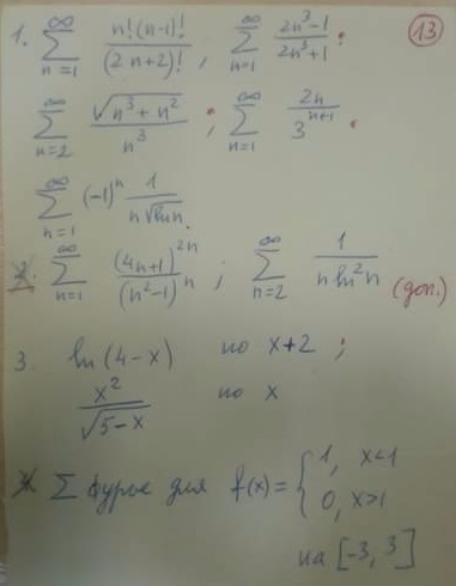 13
1. ∑_{n=1}^{∞} n!(n-1)!/(2n+2)! , ∑_{n=1}^{∞} (2n³-1)/(2n³+1) ;
∑_{n=2}^{∞} √(n³+n²)/n³ ; ∑_{n=1}^{∞} 2n/3^{n+1} .
∑_{n=1}^{∞} (-1)ⁿ 1/(n√(ln n)) .
2. ∑_{n=1}^{∞} (4n+1)^{2n}/(n²-1)ⁿ ; ∑_{n=2}^{∞} 1/(n ln²n) (доп.)
3. ln(4-x) по x+2 ;
x²/√(5-x) по x
∑ Фурье для f(x) = { 1, x<1
0, x>1
на [-3, 3]